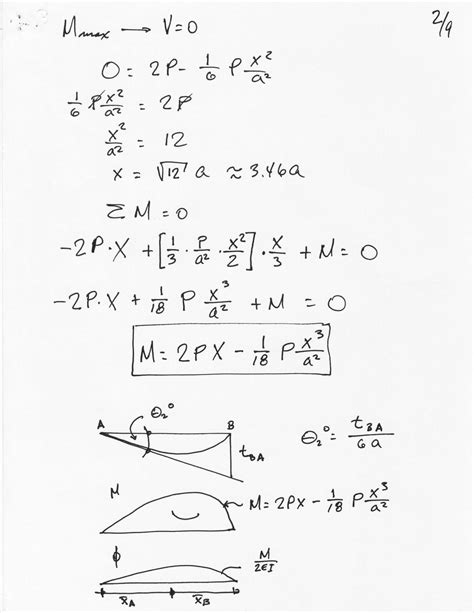 2/9
Mmax → V=0
0 = 2P - 1/6 P x²/a²
1/6 P x²/a² = 2P
x²/a² = 12
x = √12 a ≈ 3.46a
ΣM = 0
-2P·X + [1/3 · P/a² · x²/2] · x/3 + M = 0
-2P·X + 1/18 P x³/a² + M = 0
M = 2PX - 1/18 P x³/a²
θ₂°
A B
t_BA
θ₂° = t_BA/6a
M
M = 2PX - 1/18 P x³/a²
ϕ
M/2EI
x̄_A x̄_B